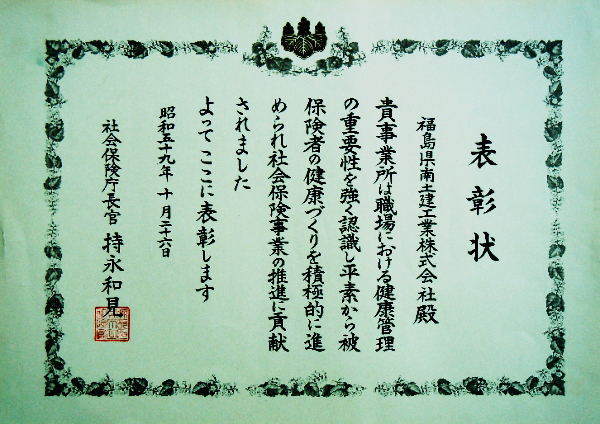 表彰状
福島県南土建工業株式会社殿
貴事業所は職場における健康管理
の重要性を強く認識し平素から被
保険者の健康づくりを積極的に進
められ社会保険事業の推進に貢献
されました
よってここに表彰します
昭和五十九年十月二十六日
社会保険庁長官 持永和見